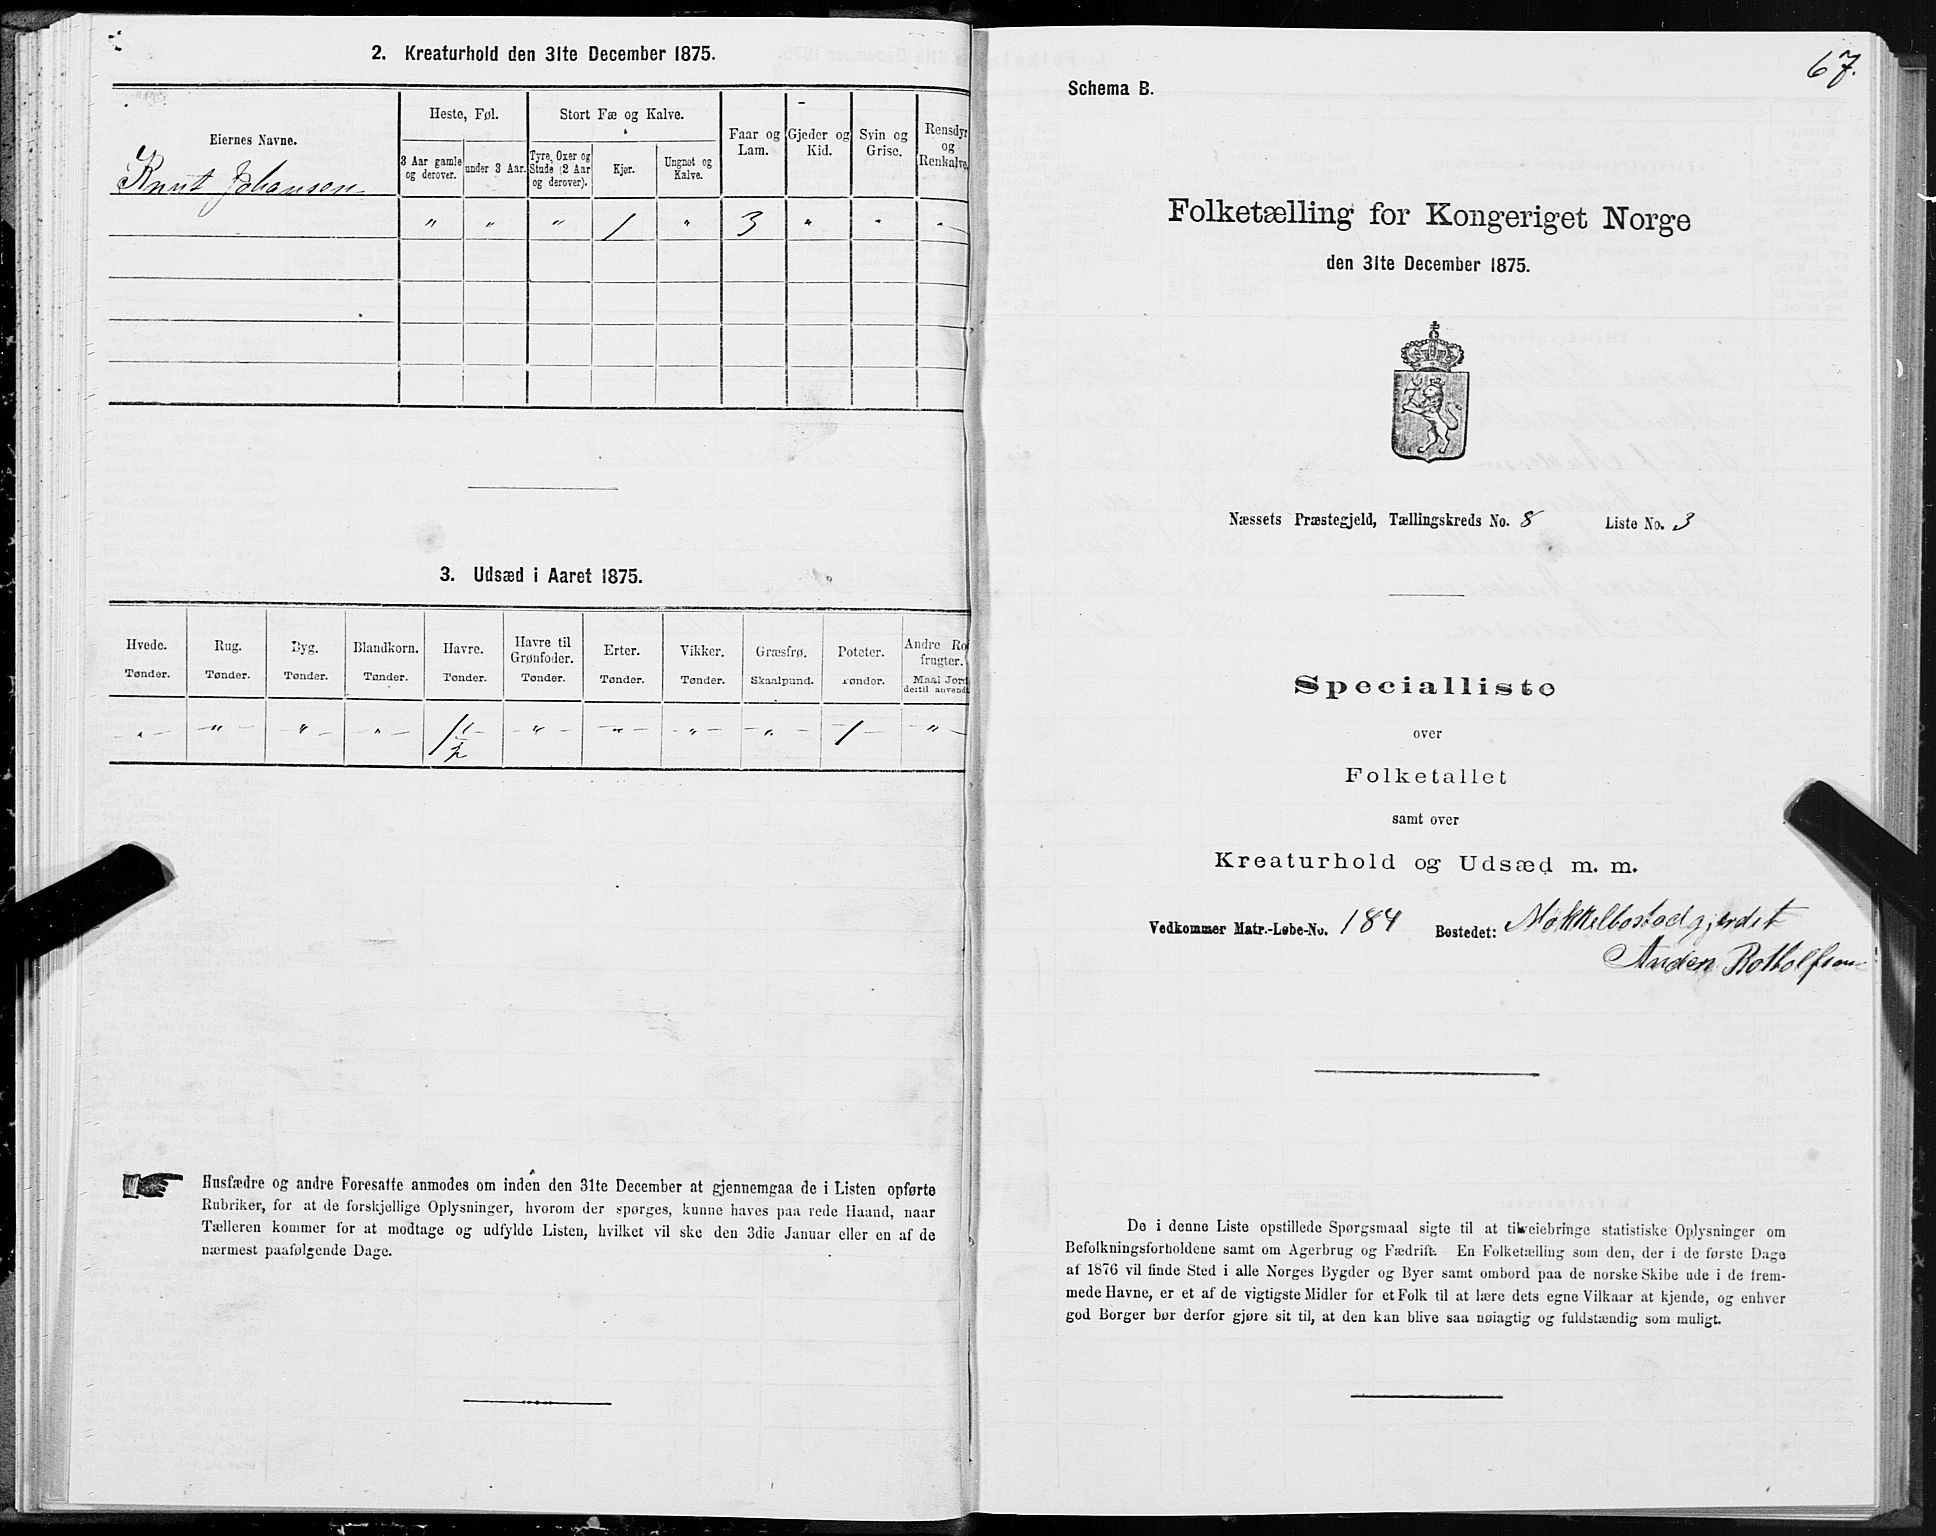 2. Kreaturhold den 31te December 1875.
Eiernes Navne.
Heste, Føl.
Stort Fæ og Kalve.
Faar og Lam.
Gjeder og Kid.
Svin og Grise.
Rensdyr og Renkalve.
3 Aar gamle og derover.
under 3 Aar.
Tyre, Oxer og Stude (2 Aar og derover).
Kjør.
Ungnøt og Kalve.
Knut Johansen
" " " 1 " 3 " " "
3. Udsæd i Aaret 1875.
Hvede. Rug. Byg. Blandkorn. Havre. Havre til Grønfoder. Erter. Vikker. Græsfrø. Poteter. Andre Ro
frugter.
Tønder. Tønder. Tønder. Tønder. Tønder. Tønder. Tønder. Tønder. Skaalpund. Tønder. Maal Jord
dertil anvendt
" " " " 1 1/2 " " " " 1 "
Husfædre og andre Foresatte anmodes om inden den 31te December at gjennemgaa de i Listen opførte
Rubriker, for at de forskjellige Oplysninger, hvorom der spørges, kunne haves paa rede Haand, naar
Tælleren kommer for at modtage og udfylde Listen, hvilket vil ske den 3die Januar eller en af de
nærmest paafølgende Dage.
67.
Schema B.
Folketælling for Kongeriget Norge
den 31te December 1875.
Næssets Præstegjeld, Tællingskreds No. 8 Liste No. 3
Specialliste
over
Folketallet
samt over
Kreaturhold og Udsæd m. m.
Vedkommer Matr.-Løbe-No. 184 Bostedet: Mokkelbostadgjerdet
Anders Rotholfsen
De i denne Liste opstillede Spørgsmaal sigte til at tilveiebringe statistiske Oplysninger om
Befolkningsforholdene samt om Agerbrug og Fædrift. En Folketælling som den, der i de første Dage
af 1876 vil finde Sted i alle Norges Bygder og Byer samt ombord paa de norske Skibe ude i de frem-
mede Havne, er et af de vigtigste Midler for et Folk til at lære dets egne Vilkaar at kjende, og enhver
god Borger bør derfor gjøre sit til, at den kan blive saa nøiagtig og fuldstændig som muligt.